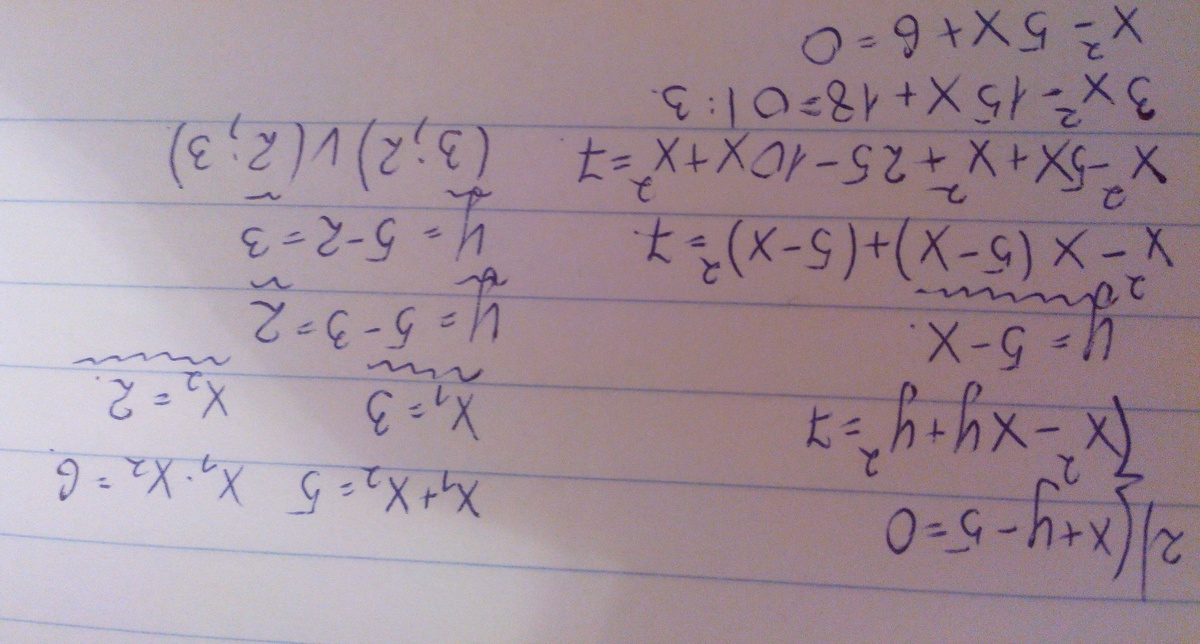 2) { x+y-5=0
x²-xy+y²=7
y=5-x
x²-x(5-x)+(5-x)²=7
x²-5x+x²+25-10x+x²=7
3x²-15x+18=0|:3
x²-5x+6=0
x₁+x₂=5 x₁·x₂=6
x₁=3 x₂=2.
y=5-3=2
y=5-2=3
(3;2) V (2;3)